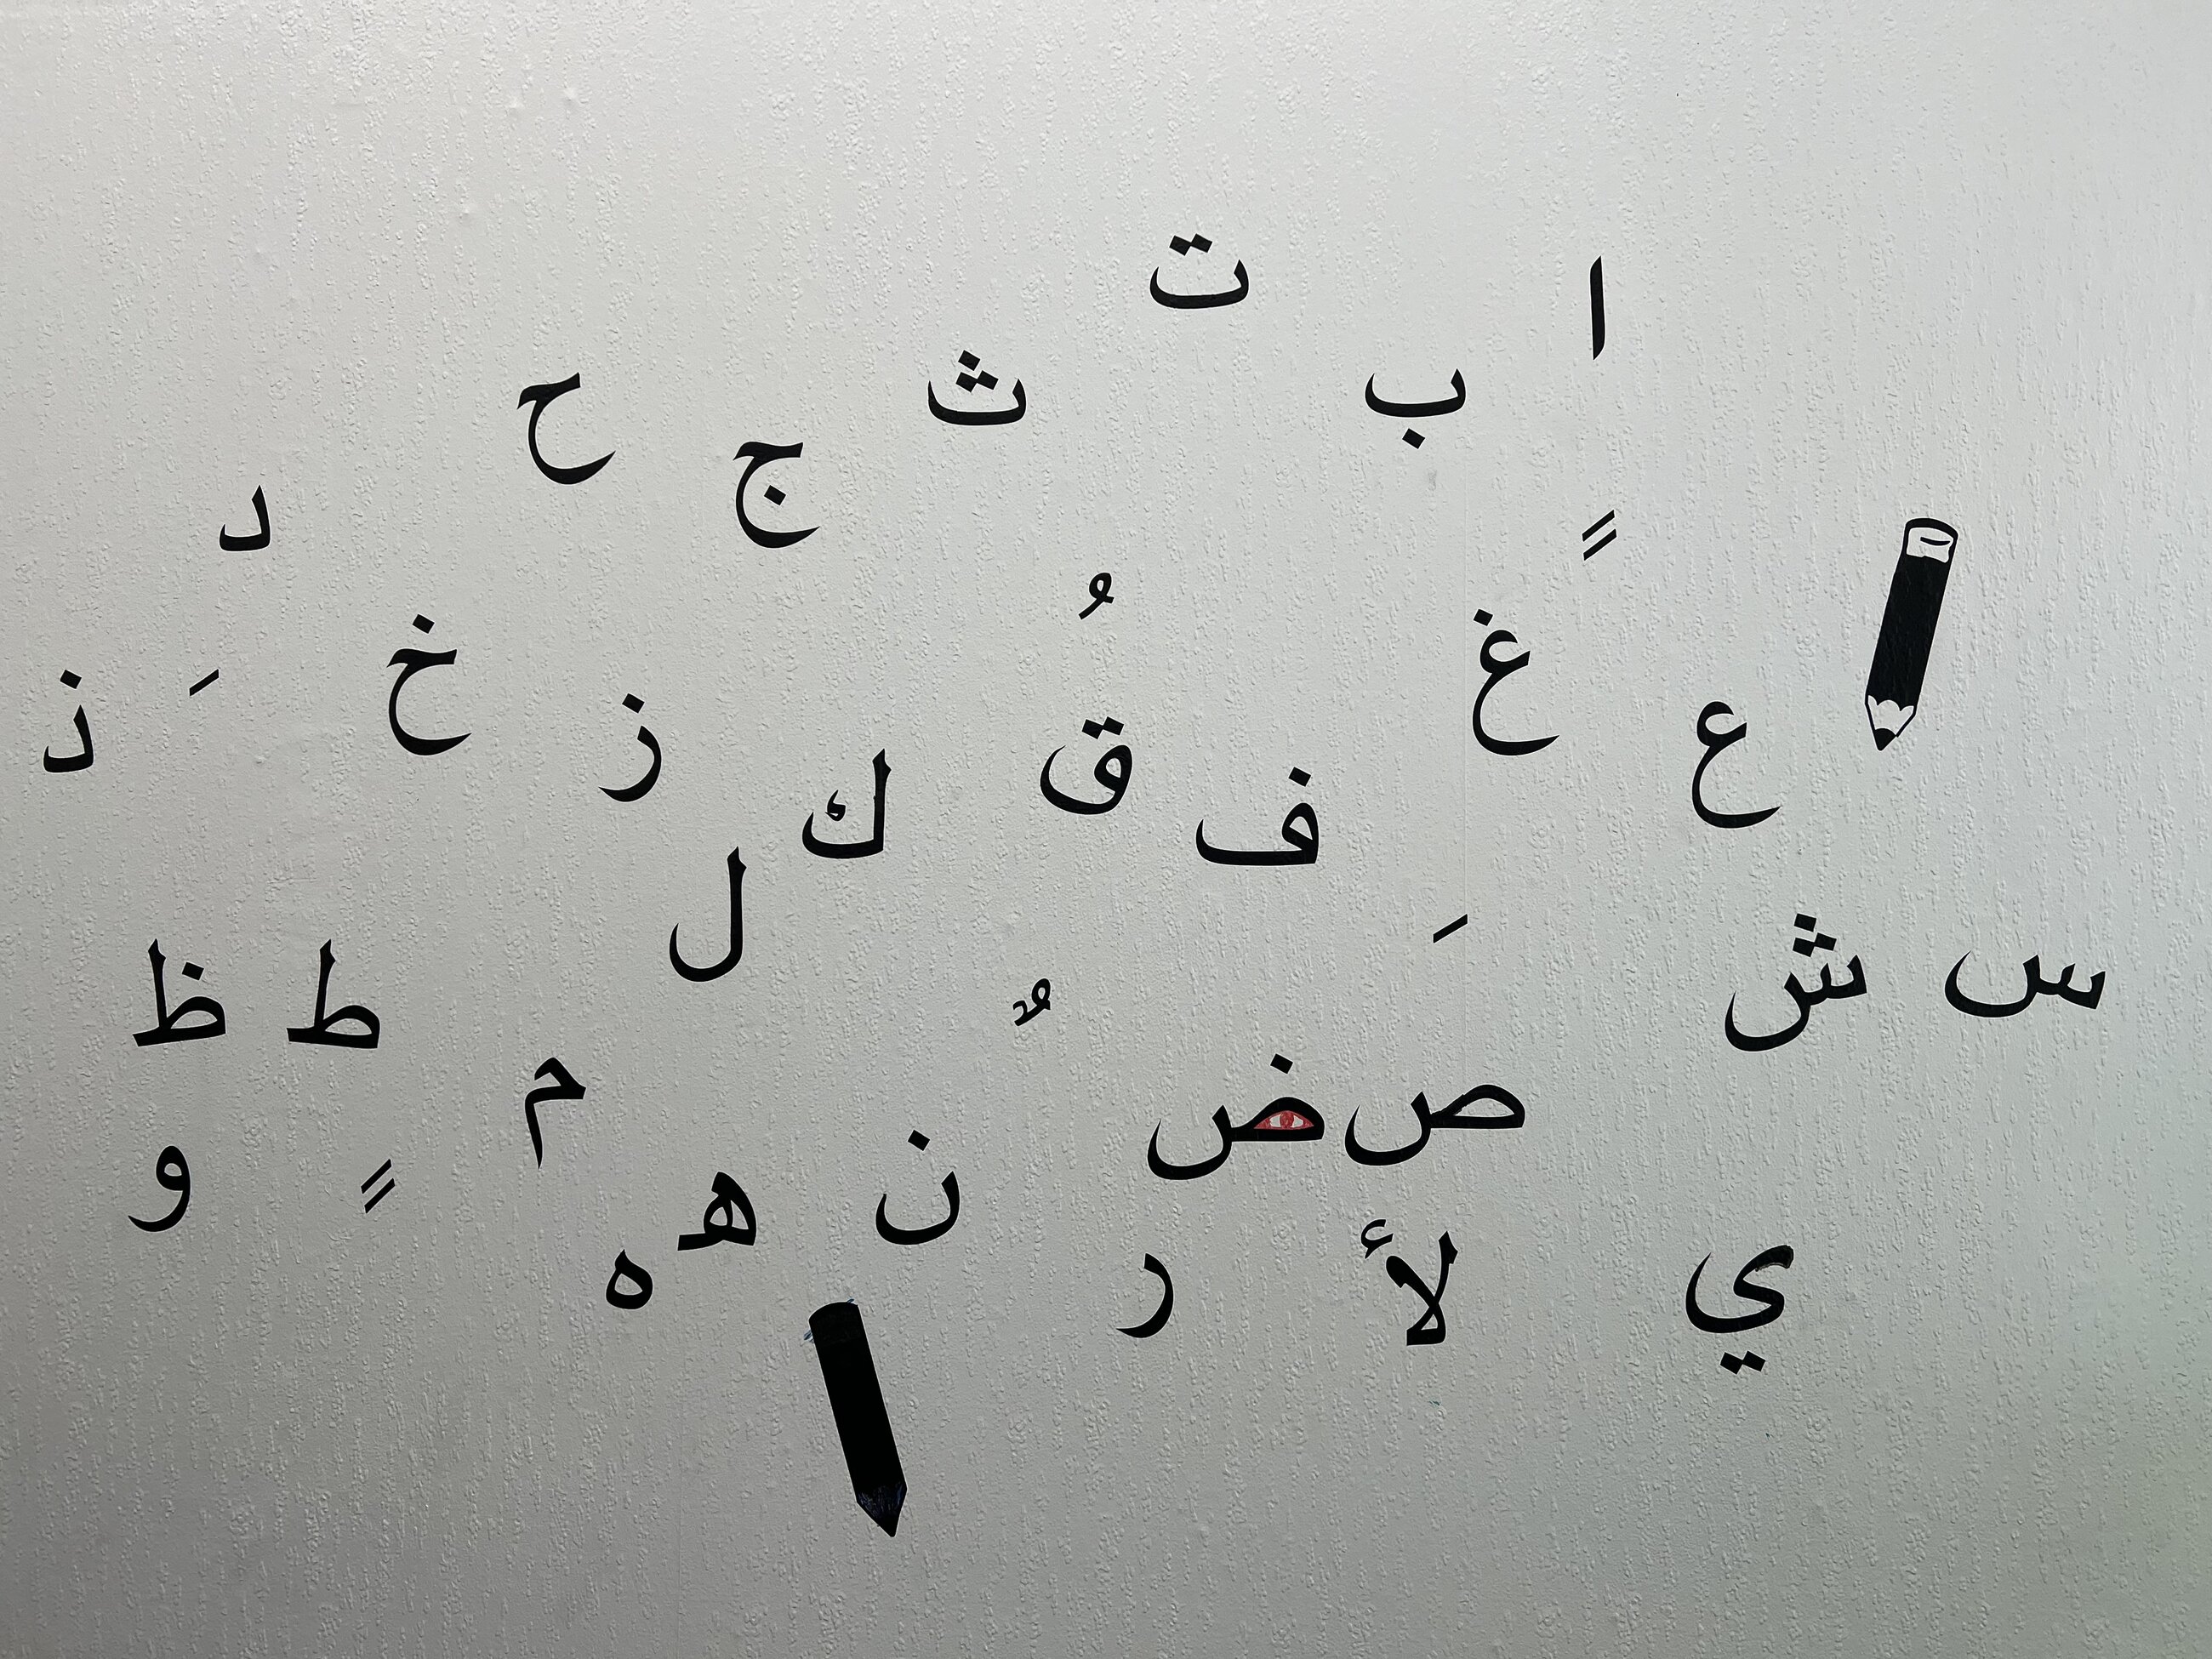 ا ب ت ث ج ح د
ع غ ً ف ُ ق ك ز خ َ ذ
س ش َ ٌ ل ط ظ
ص ض ن م ٍ و
ي لأ ر ه ه